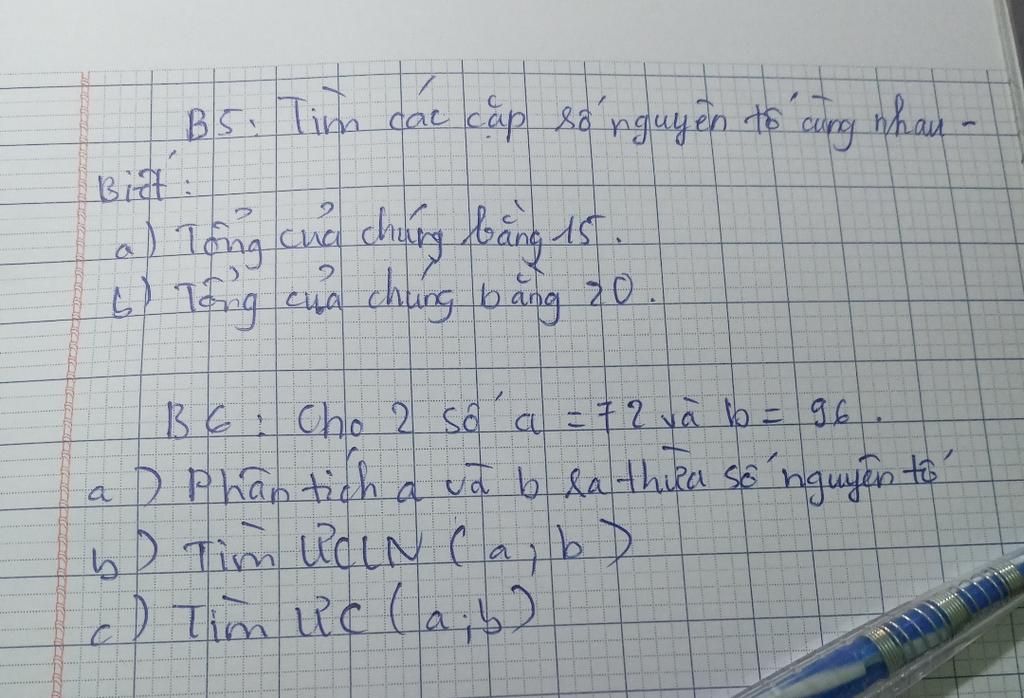 B5: Tìm các cặp số nguyên tố cùng nhau -
Biết:
a) Tổng của chúng bằng 15.
b) Tổng của chúng bằng 20.
B6: Cho 2 số a = 72 và b = 96.
a) Phân tích a và b ra thừa số nguyên tố
b) Tìm ƯCLN (a; b)
c) Tìm ƯC (a; b)